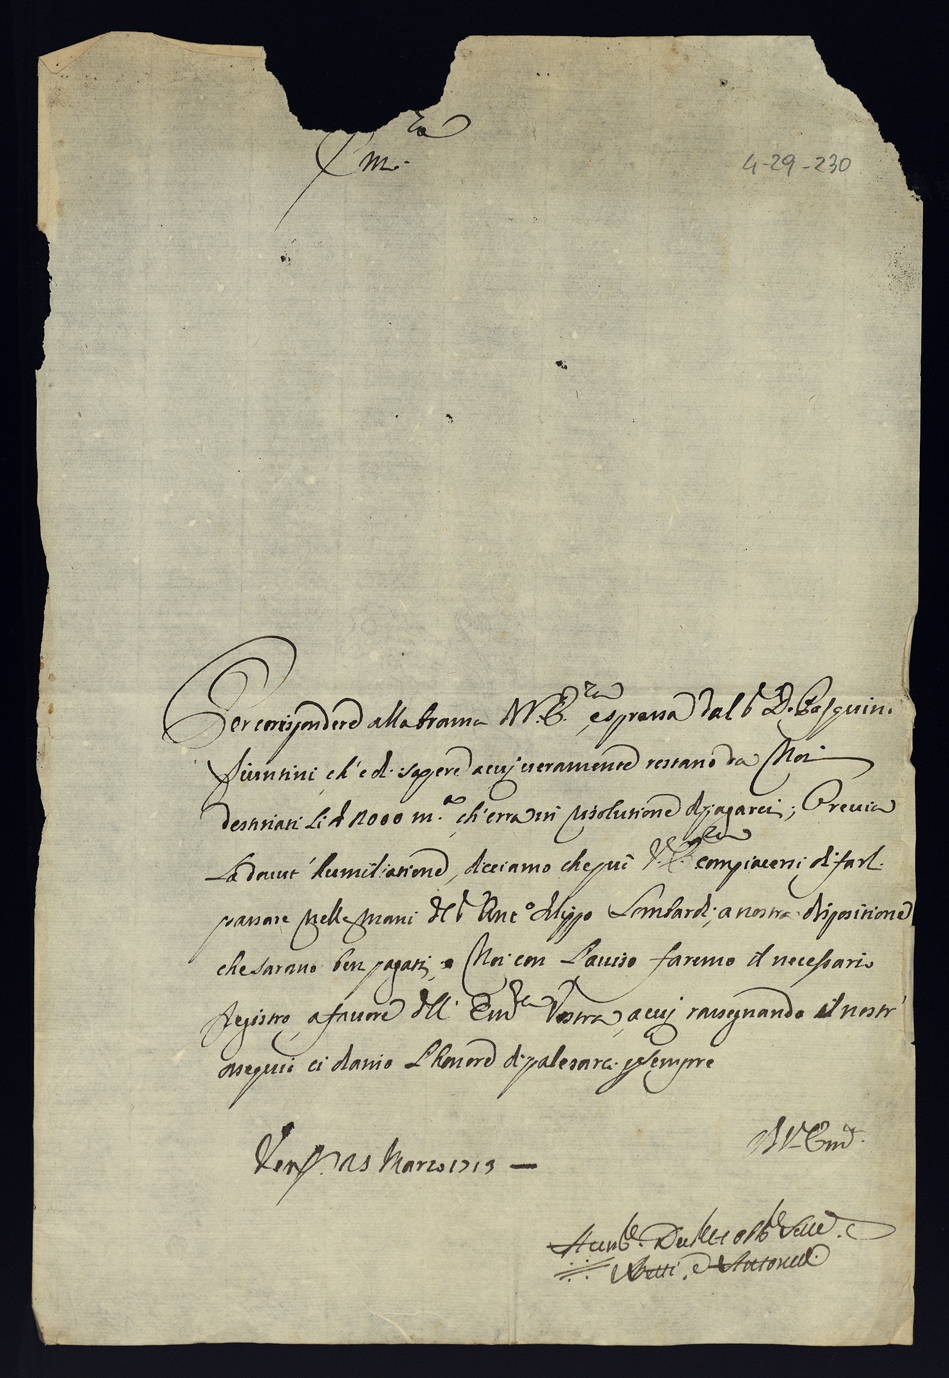 Em.za
4-29-230
Per corispondere alla brama di V. E.za espressa dal S.r D. Pasquin.
fiuntini, ch'è di sapere a cuj veramente restano da Noi
destinati Li d 12000 m.a ch'erra in risolutione di pagarci; Previa
La dovut' humiliatione, diciamo che può V. E.za compiacersi di farli
passare nelle mani del S.r Ant.o Filippo Lombardi, a nostra dispositione
che sarano ben pagati, e Noi con L'auiso faremo il necessario
registro, a favore dell' Em.za Vostra, a cuj rassegnando il nostr
ossequio ci diamo L'honore di palesarci p sempre
Di V. Em.za
Ven.a 25 Marzo 1713 —
Hum.mi Deu.mi et Obb.mi Seru.ri